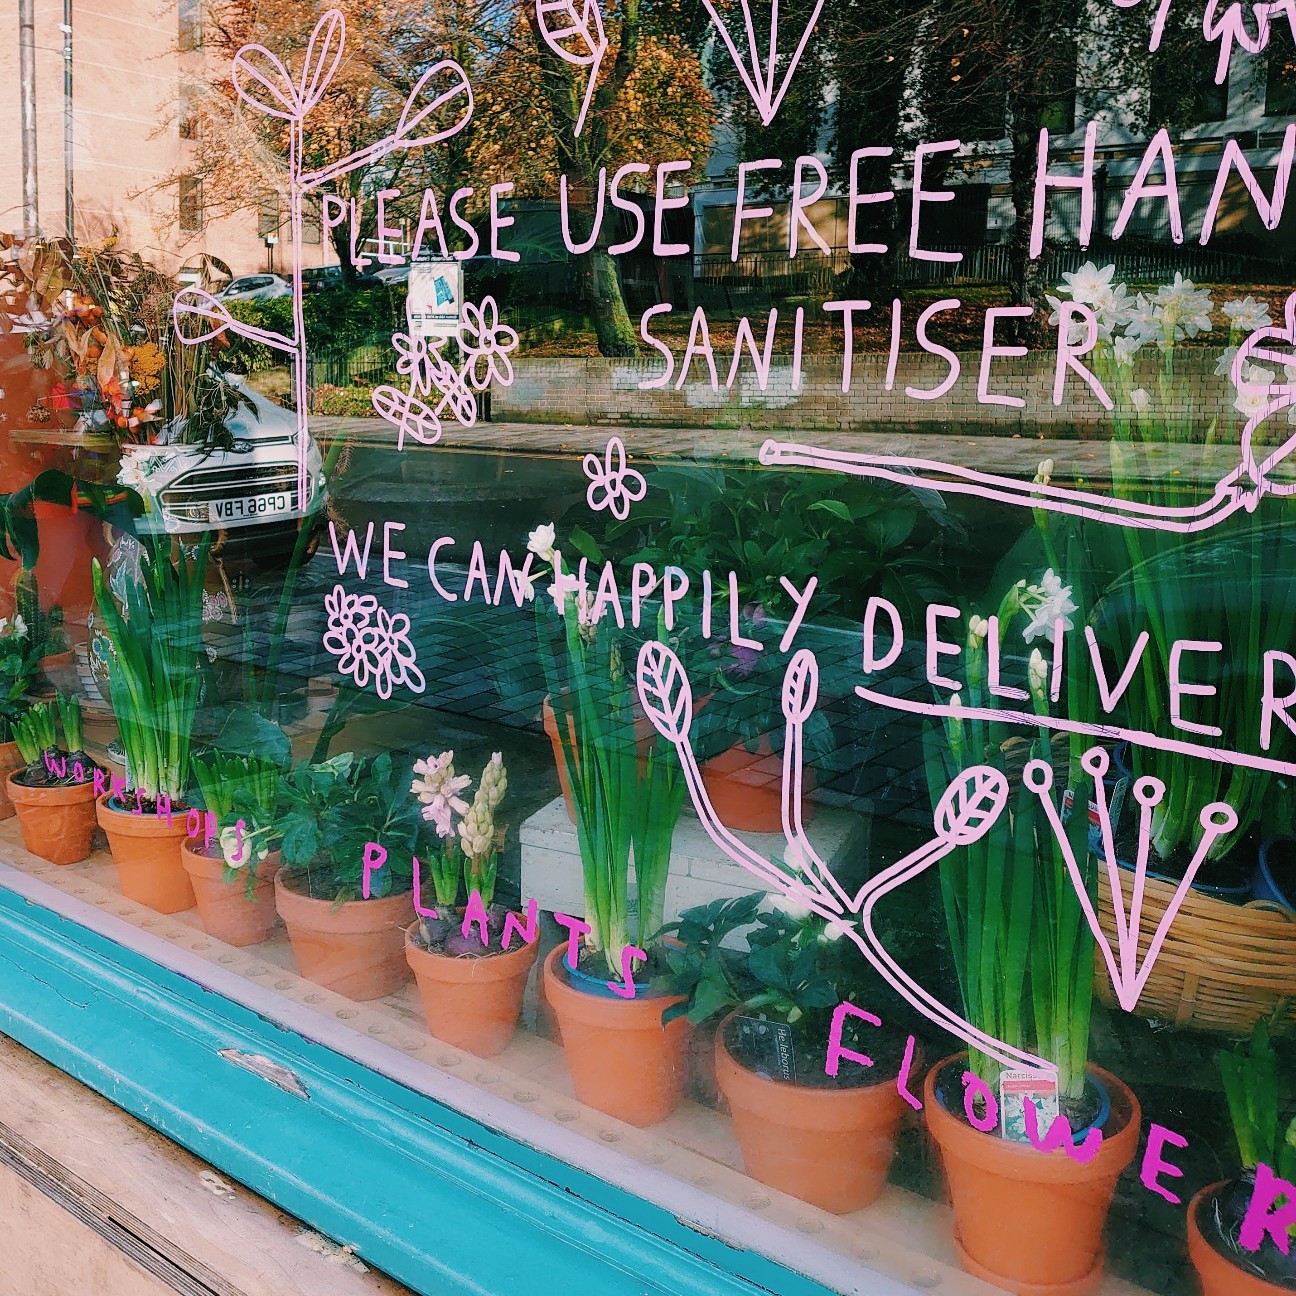 PLEASE USE FREE HAN
SANITISER
WE CAN HAPPILY DELIVER
WORKSHOPS PLANTS FLOWER
CP66 FBV
Helleborus
Narciss